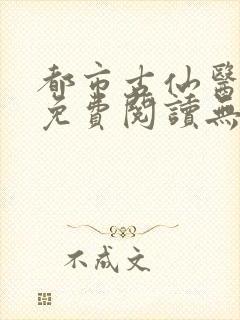 都市古仙醫
免費閱讀無
不成文